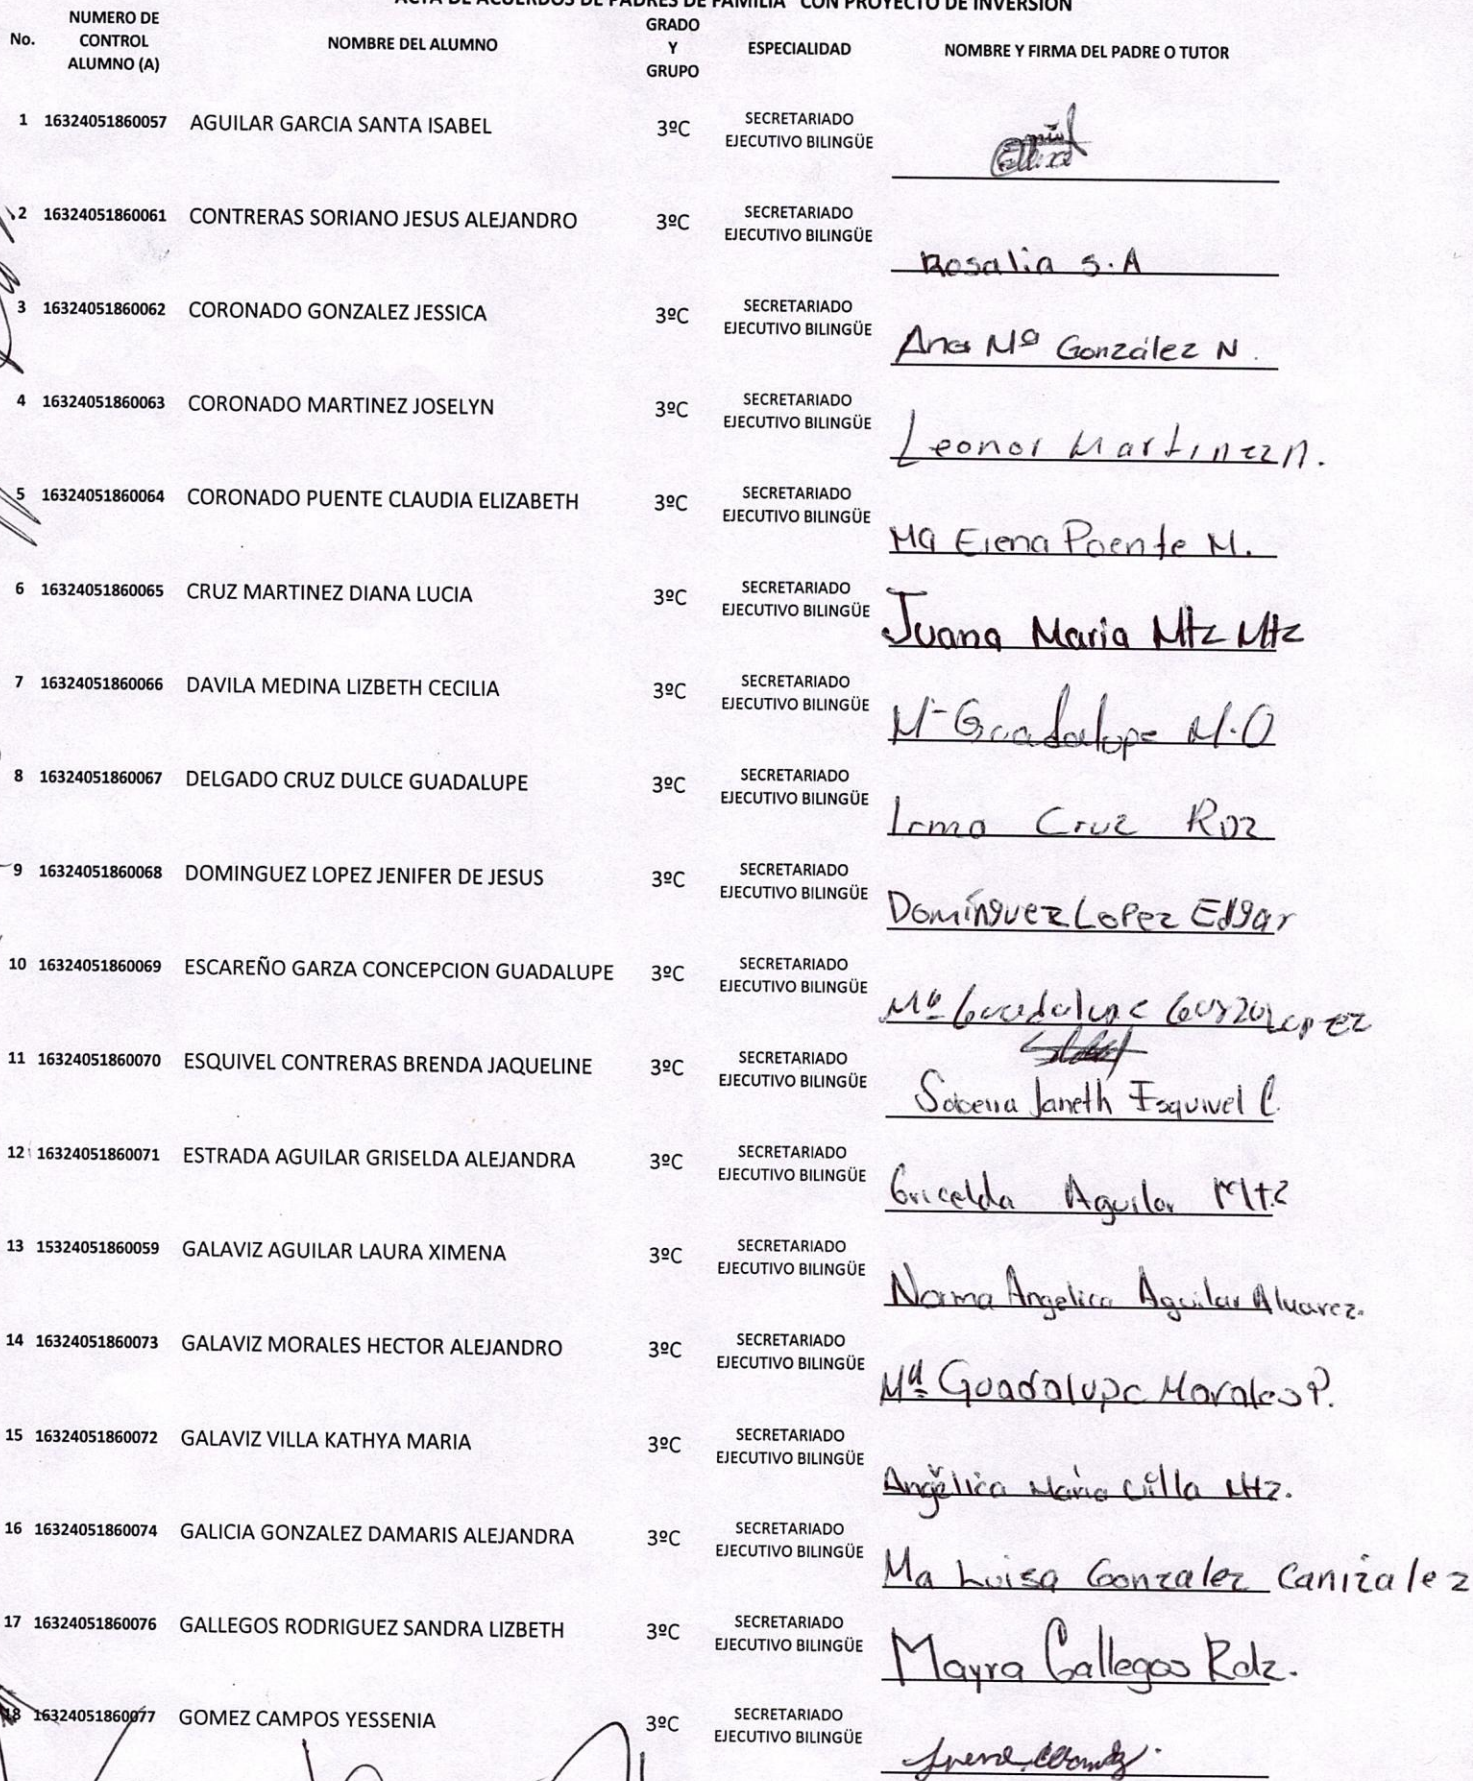 ACTA DE ACUERDOS DE PADRES DE FAMILIA CON PROYECTO DE INVERSION
No. NUMERO DE CONTROL ALUMNO (A) NOMBRE DEL ALUMNO GRADO Y GRUPO ESPECIALIDAD NOMBRE Y FIRMA DEL PADRE O TUTOR
1 16324051860057 AGUILAR GARCIA SANTA ISABEL 3ºC SECRETARIADO EJECUTIVO BILINGÜE
2 16324051860061 CONTRERAS SORIANO JESUS ALEJANDRO 3ºC SECRETARIADO EJECUTIVO BILINGÜE Rosalia S.A
3 16324051860062 CORONADO GONZALEZ JESSICA 3ºC SECRETARIADO EJECUTIVO BILINGÜE Ana Mª González N.
4 16324051860063 CORONADO MARTINEZ JOSELYN 3ºC SECRETARIADO EJECUTIVO BILINGÜE Leonor Martinez N.
5 16324051860064 CORONADO PUENTE CLAUDIA ELIZABETH 3ºC SECRETARIADO EJECUTIVO BILINGÜE Ma Elena Puente M.
6 16324051860065 CRUZ MARTINEZ DIANA LUCIA 3ºC SECRETARIADO EJECUTIVO BILINGÜE Juana Maria Mtz Mtz
7 16324051860066 DAVILA MEDINA LIZBETH CECILIA 3ºC SECRETARIADO EJECUTIVO BILINGÜE Guadalupe M.O
8 16324051860067 DELGADO CRUZ DULCE GUADALUPE 3ºC SECRETARIADO EJECUTIVO BILINGÜE Irma Cruz Rdz
9 16324051860068 DOMINGUEZ LOPEZ JENIFER DE JESUS 3ºC SECRETARIADO EJECUTIVO BILINGÜE Domínguez Lopez Edgar
10 16324051860069 ESCAREÑO GARZA CONCEPCION GUADALUPE 3ºC SECRETARIADO EJECUTIVO BILINGÜE Mª Guadalupe Garza Lopez
11 16324051860070 ESQUIVEL CONTRERAS BRENDA JAQUELINE 3ºC SECRETARIADO EJECUTIVO BILINGÜE Janeth Esquivel C.
12 16324051860071 ESTRADA AGUILAR GRISELDA ALEJANDRA 3ºC SECRETARIADO EJECUTIVO BILINGÜE Gricelda Aguilar Mtz
13 15324051860059 GALAVIZ AGUILAR LAURA XIMENA 3ºC SECRETARIADO EJECUTIVO BILINGÜE Norma Angelica Aguilar Alvarez.
14 16324051860073 GALAVIZ MORALES HECTOR ALEJANDRO 3ºC SECRETARIADO EJECUTIVO BILINGÜE Mª Guadalupe Morales P.
15 16324051860072 GALAVIZ VILLA KATHYA MARIA 3ºC SECRETARIADO EJECUTIVO BILINGÜE Angélica Maria Villa Mtz.
16 16324051860074 GALICIA GONZALEZ DAMARIS ALEJANDRA 3ºC SECRETARIADO EJECUTIVO BILINGÜE Ma Luisa Gonzalez Canizalez
17 16324051860076 GALLEGOS RODRIGUEZ SANDRA LIZBETH 3ºC SECRETARIADO EJECUTIVO BILINGÜE Mayra Gallegos Rdz.
18 16324051860077 GOMEZ CAMPOS YESSENIA 3ºC SECRETARIADO EJECUTIVO BILINGÜE